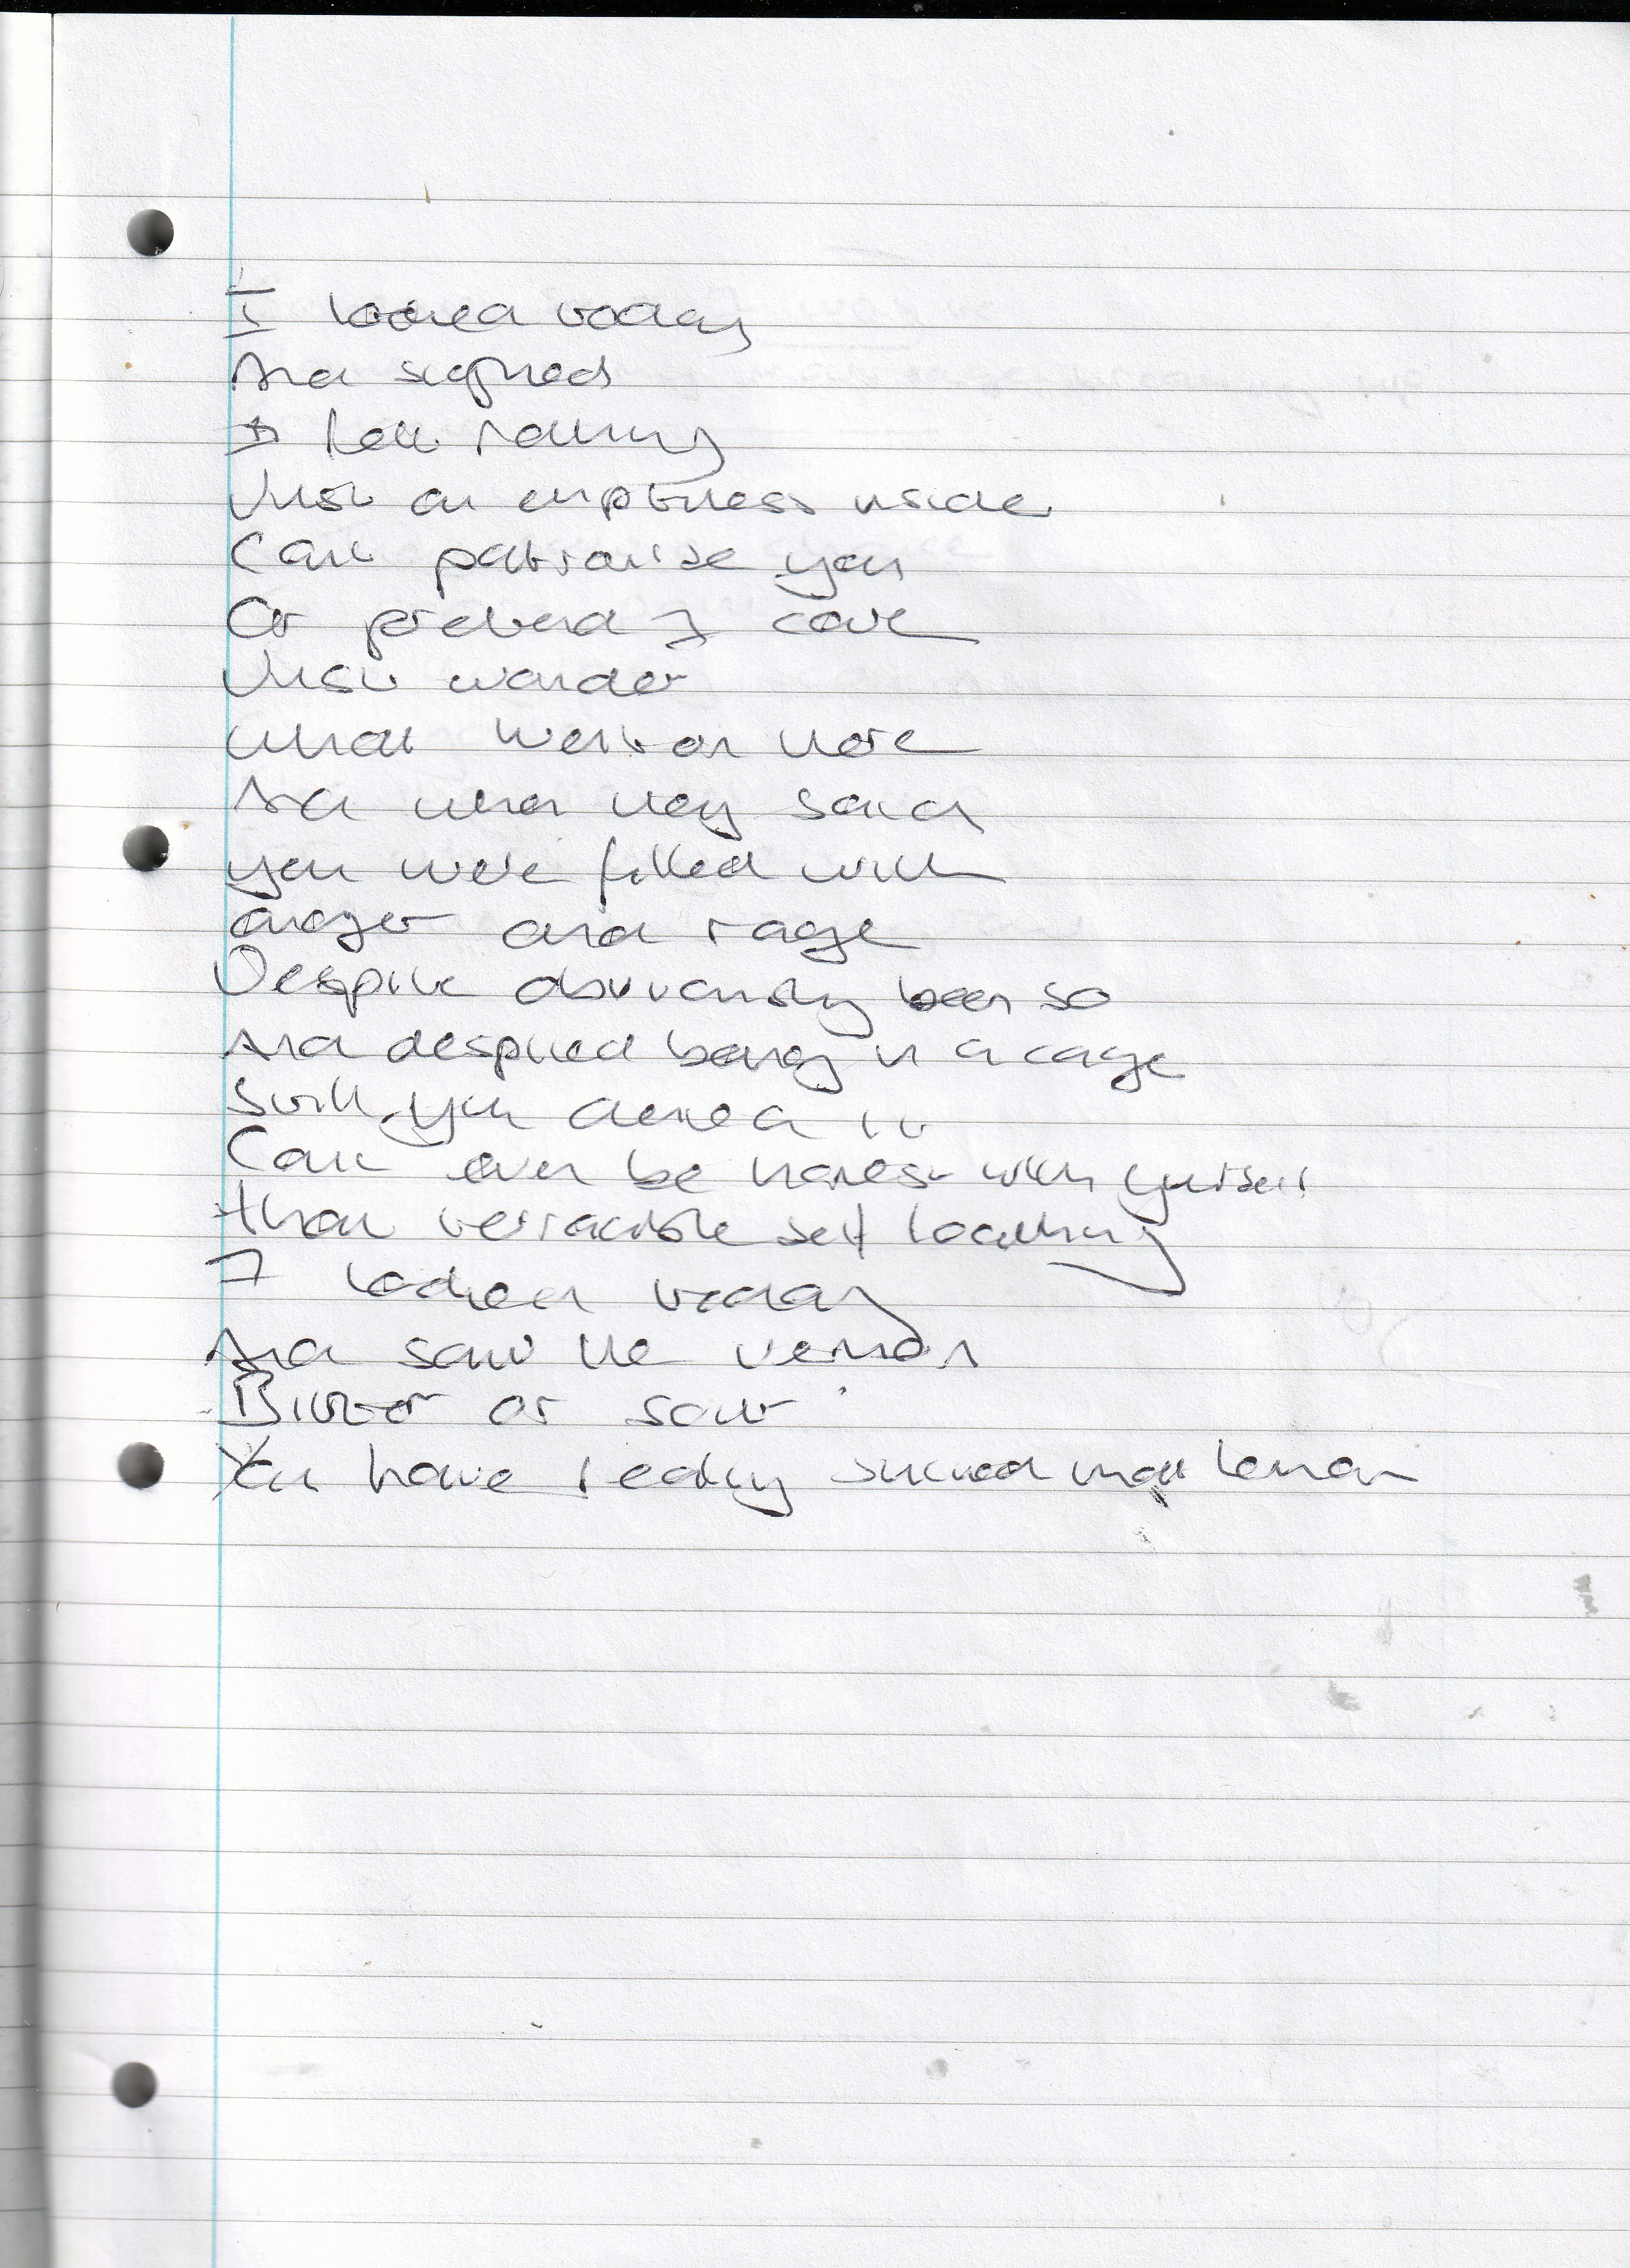 I looked today
And sighed
I felt nothing
Just an emptiness inside
Cant patronise you
Or pretend I care
Just wonder
What went on there
And when they said
you were filled with
anger and rage
Despite obviously been so
And despited being in a cage
Still you denied it
Cant even be honest with yourself
than self loathing
I looked today
And saw the venom
Bitter or sour
You have really sucked that lemon